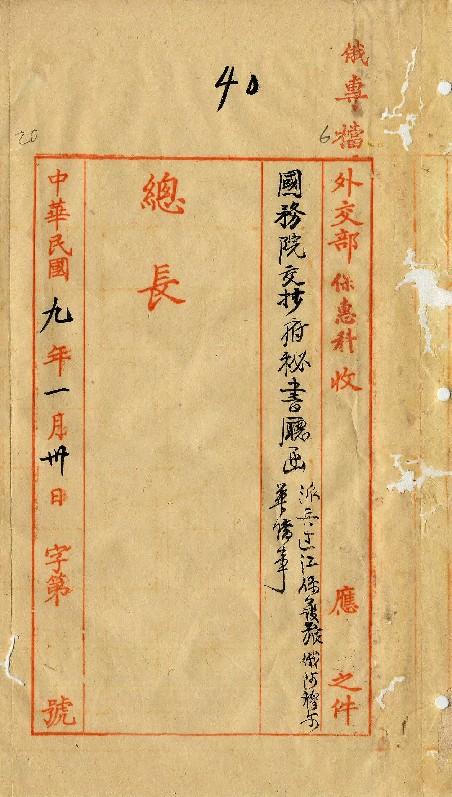 40
俄專檔
6
20
外交部保惠科收 應 之件
國務院交抄府秘書廳函
派兵過江保護旅俄阿穆尔
華僑事
總長
中華民國九年一月卅日 字第 號